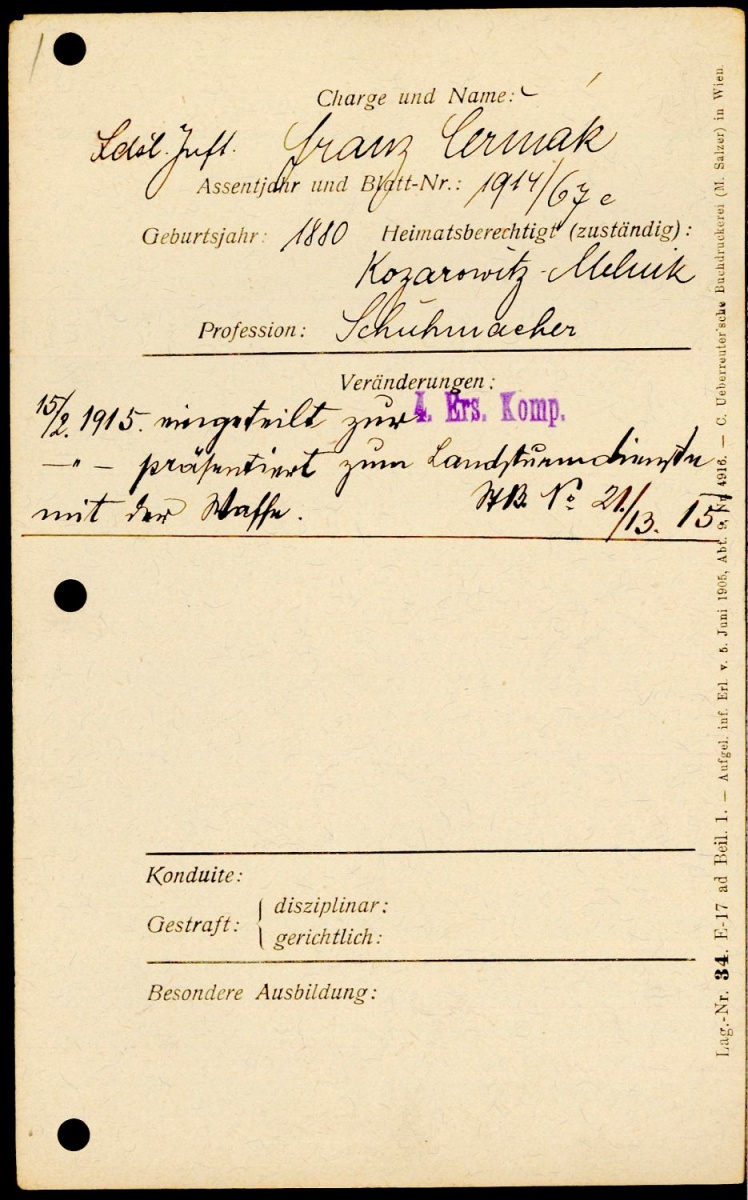 Charge und Name:
Ldst. Inft. Franz Cermák
Assentjahr und Blatt-Nr.: 1914/67 c
Geburtsjahr: 1880 Heimatsberechtigt (zuständig):
Kozarowitz - Melnik
Profession: Schuhmacher
Veränderungen:
15/2. 1915. eingeteilt zur 4. Ers. Komp.
—"— präsentiert zum Landsturmdienste
mit der Waffe. No 21./13. 15
Konduite:
Gestraft: { disziplinar:
gerichtlich:
Besondere Ausbildung:
Lag.-Nr. 34. E-17 ad Beil. 1. — Aufgel. inf. Erl. v. 5. Juni 1905, Abt. 9, Nr. 4916. — C. Ueberreuter'sche Buchdruckerei (M. Salzer) in Wien.